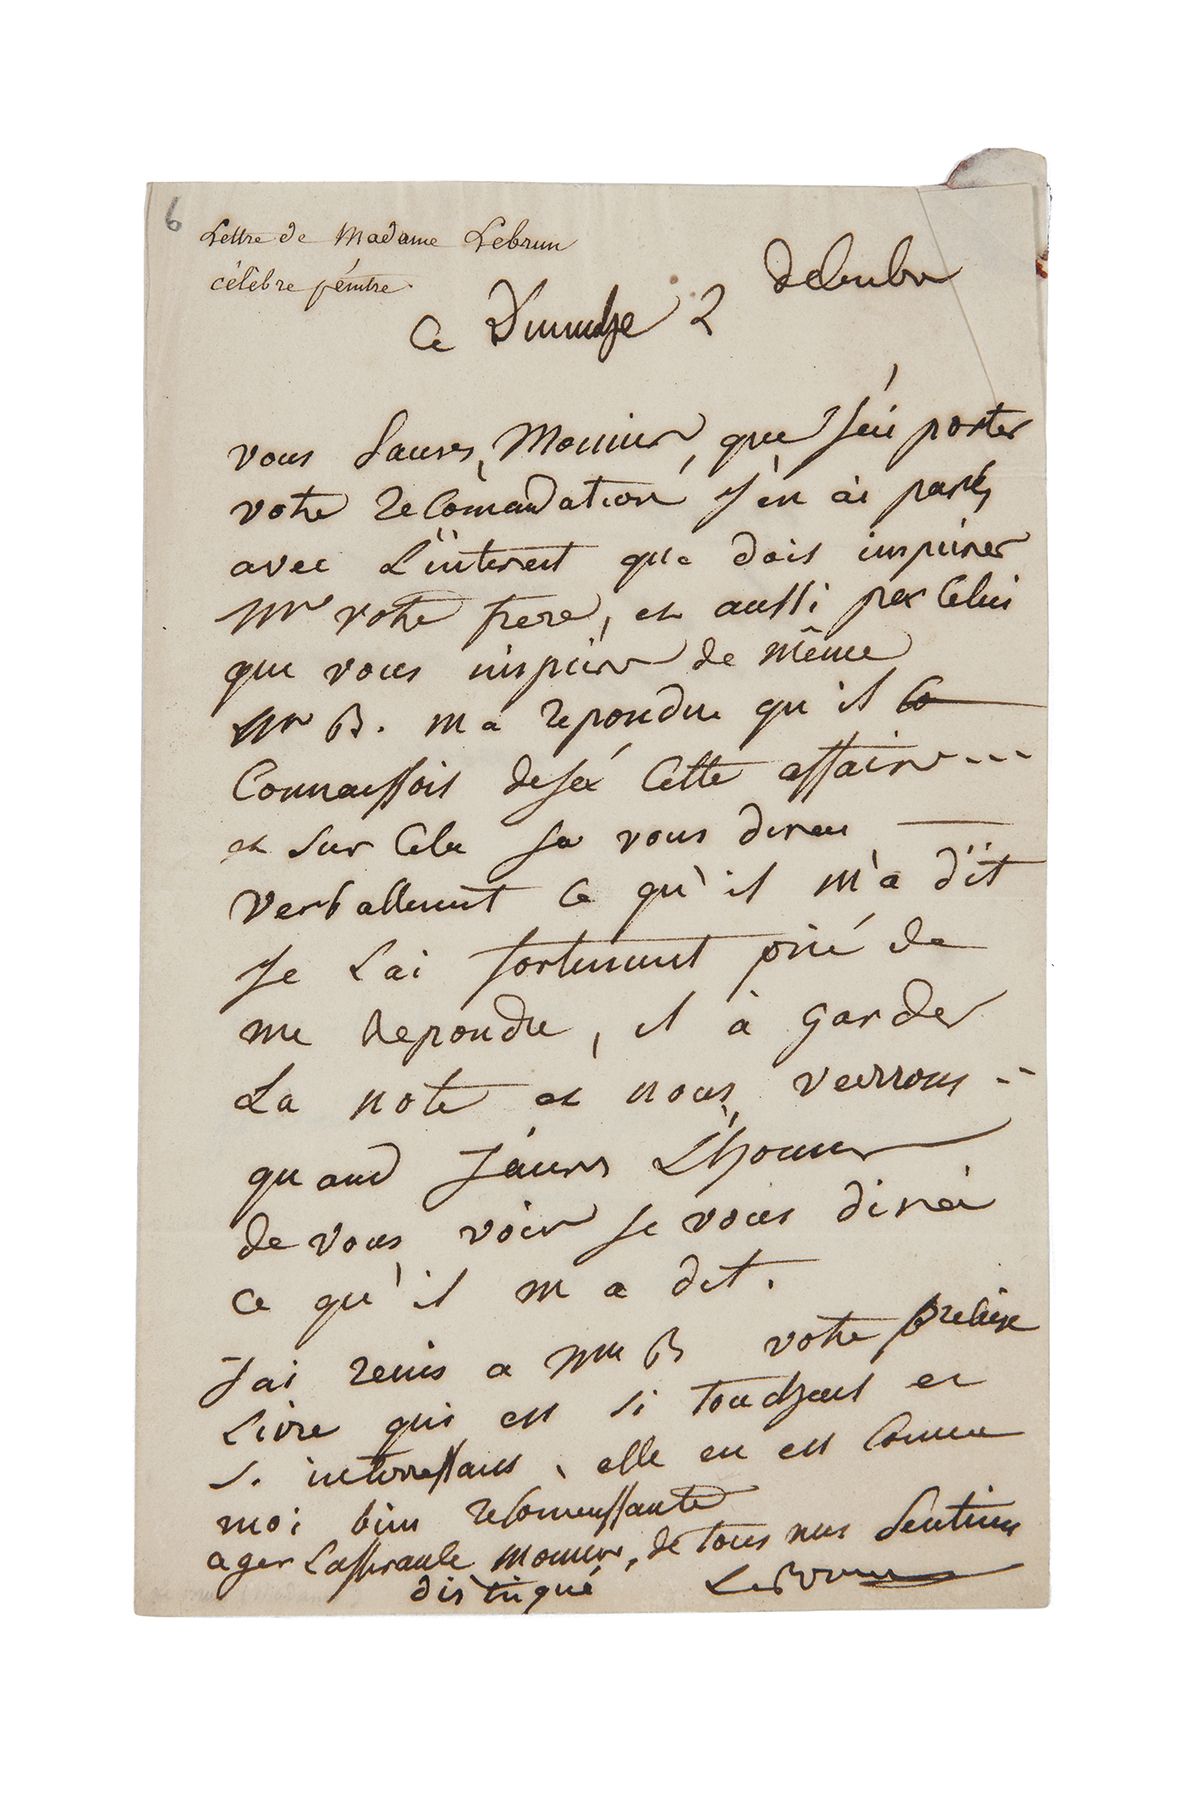 6
Lettre de Madame Lebrun
célèbre péintre.
Ce Dimanche 2
vous saures, Monsieur, que J'ai porter
votre recomandation J'en ai parlés
avec L'interest que dois inspirer
Mr votre frere, et aussi par Celui
que vous inspirer de même
Mr B. m a repondu qu il Co
Connaissois deja Cette affaire ---
et sur Cela Je vous direai
verballement ce qu'il m'a dit
Je L'ai fortement prié de
me Repondre, il à garder
La note et nous veirrons --
quand J'aures L'honeur
de vous voir Je vous direai
ce qu'il m a dit.
J'ai remis a Mme B votre
Livre qui est si touchant et
si interressant, elle en est Comme
moi bien reconnessante
ager Lassurance monsieur, de tous mes Sentimens
distingué LeBrun